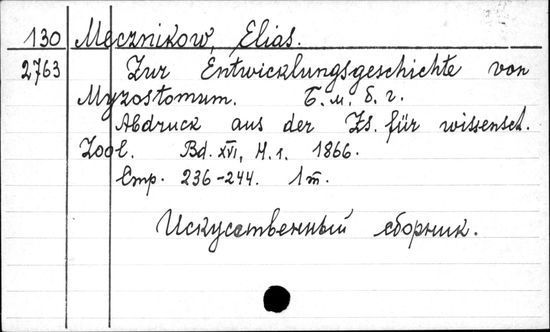 130 Mecznikow, Elias.
2763 Zur Entwicklungsgeschichte von
Myzostomum. Б. м., б. г.
Abdruck aus der Zs. für wissensch.
Zool. Bd. XVI, H. 1. 1866.
Стр. 236-244. 1 т.
Искусственный сборник.